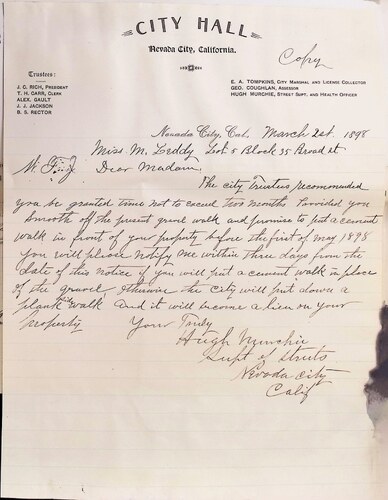 CITY HALL
Nevada City, California.
Copy
Trustees:
J. C. RICH, PRESIDENT
T. H. CARR, CLERK
ALEX. GAULT
J. J. JACKSON
B. S. RECTOR
E. A. TOMPKINS, CITY MARSHAL AND LICENSE COLLECTOR
GEO. COUGHLAN, ASSESSOR
HUGH MURCHIE, STREET SUPT. AND HEALTH OFFICER
Nevada City, Cal. March 2st 1898
Miss M. Leddy Lot 5 Block 35 Broad st
Dear Madam.
The city Trustees recommended
you be granted time not to exceed two months Provided you
smooth off the present gravel walk and promise to put a cement
walk in front of your property before the first of may 1898
you will please notify me within three days from the
date of this notice if you will put a cement walk in place
of the gravel otherwise the city will put down a
plank walk and it will become a lien on your
Property
Your Truly
Hugh Murchie
Supt of Streets
Nevada City
Calif